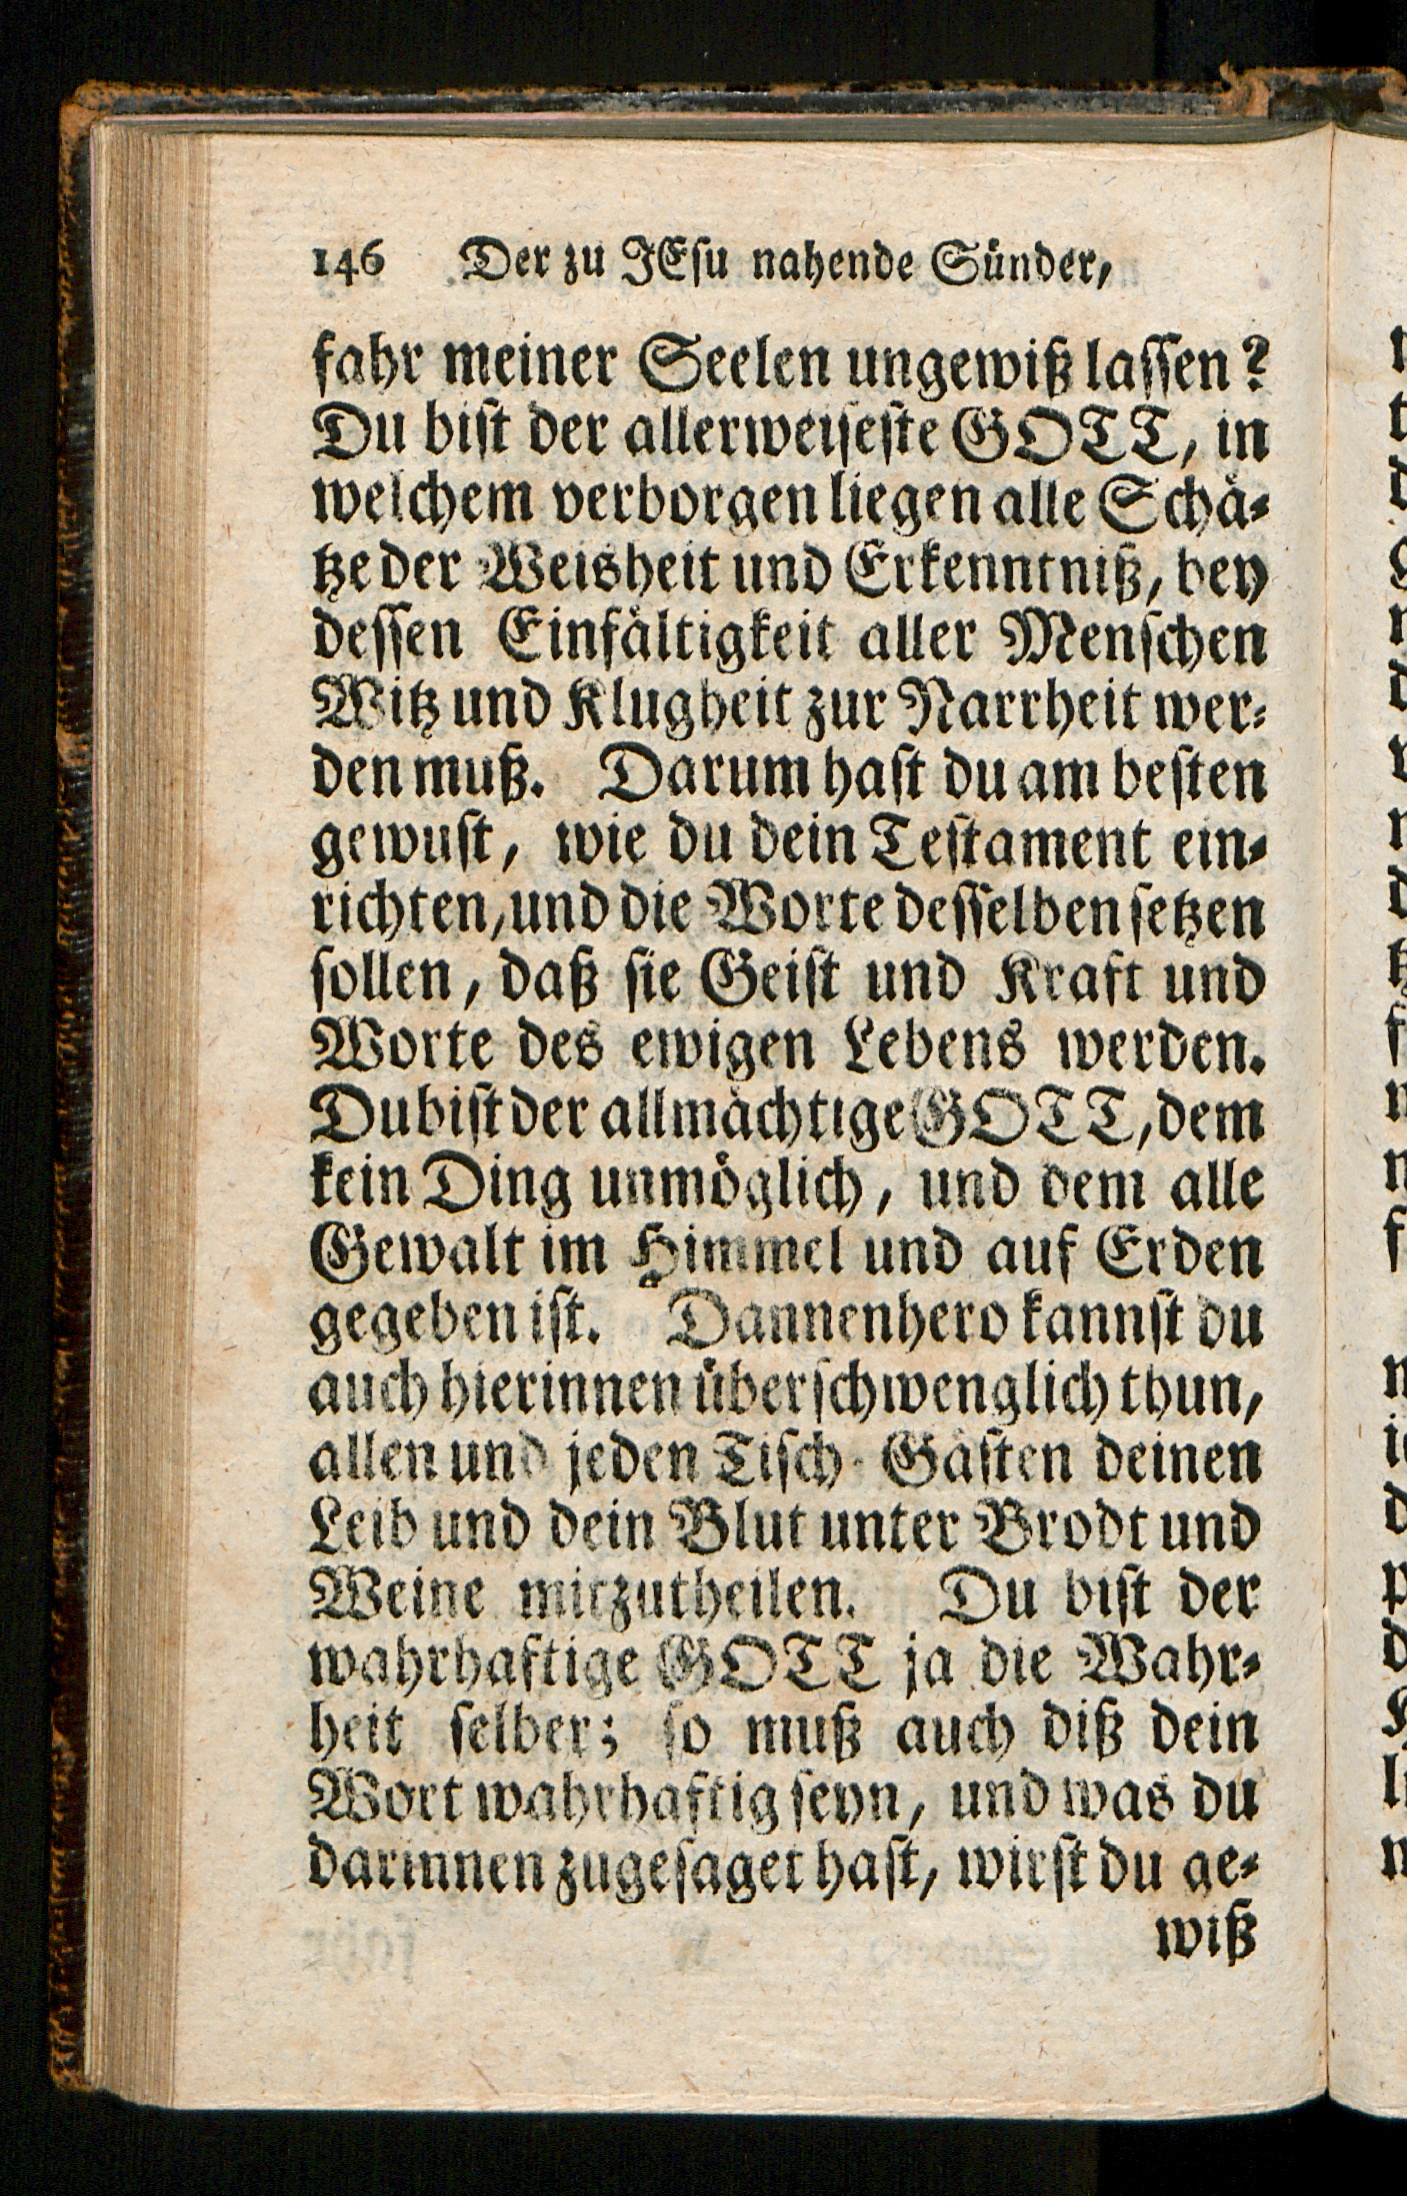 146 Der zu JEſu nahende Sünder,
fahr meiner Seelen ungewiß laſſen?
Du biſt der allerweiſeſte GOTT, in
welchem verborgen liegen alle Schaͤ⸗
tze der Weisheit und Erkenntniß, bey
deſſen Einfaͤltigkeit aller Menſchen
Witz und Klugheit zur Narrheit wer⸗
den muß. Darum haſt du am beſten
gewuſt, wie du dein Teſtament ein⸗
richten, und die Worte deſſelben ſetzen
ſollen, daß ſie Geiſt und Kraft und
Worte des ewigen Lebens werden.
Du biſt der allmaͤchtige GOTT, dem
kein Ding unmoͤglich, und dem alle
Gewalt im Himmel und auf Erden
gegeben iſt. Dannenhero kannſt du
auch hierinnen uͤberſchwenglich thun,
allen und jeden Tiſch⸗Gaͤſten deinen
Leib und dein Blut unter Brodt und
Weine mitzutheilen. Du biſt der
wahrhaftige GOTT ja die Wahr⸗
heit ſelber; ſo muß auch diß dein
Wort wahrhaftig ſeyn, und was du
darinnen zugeſaget haſt, wirſt du ge⸗
wiß